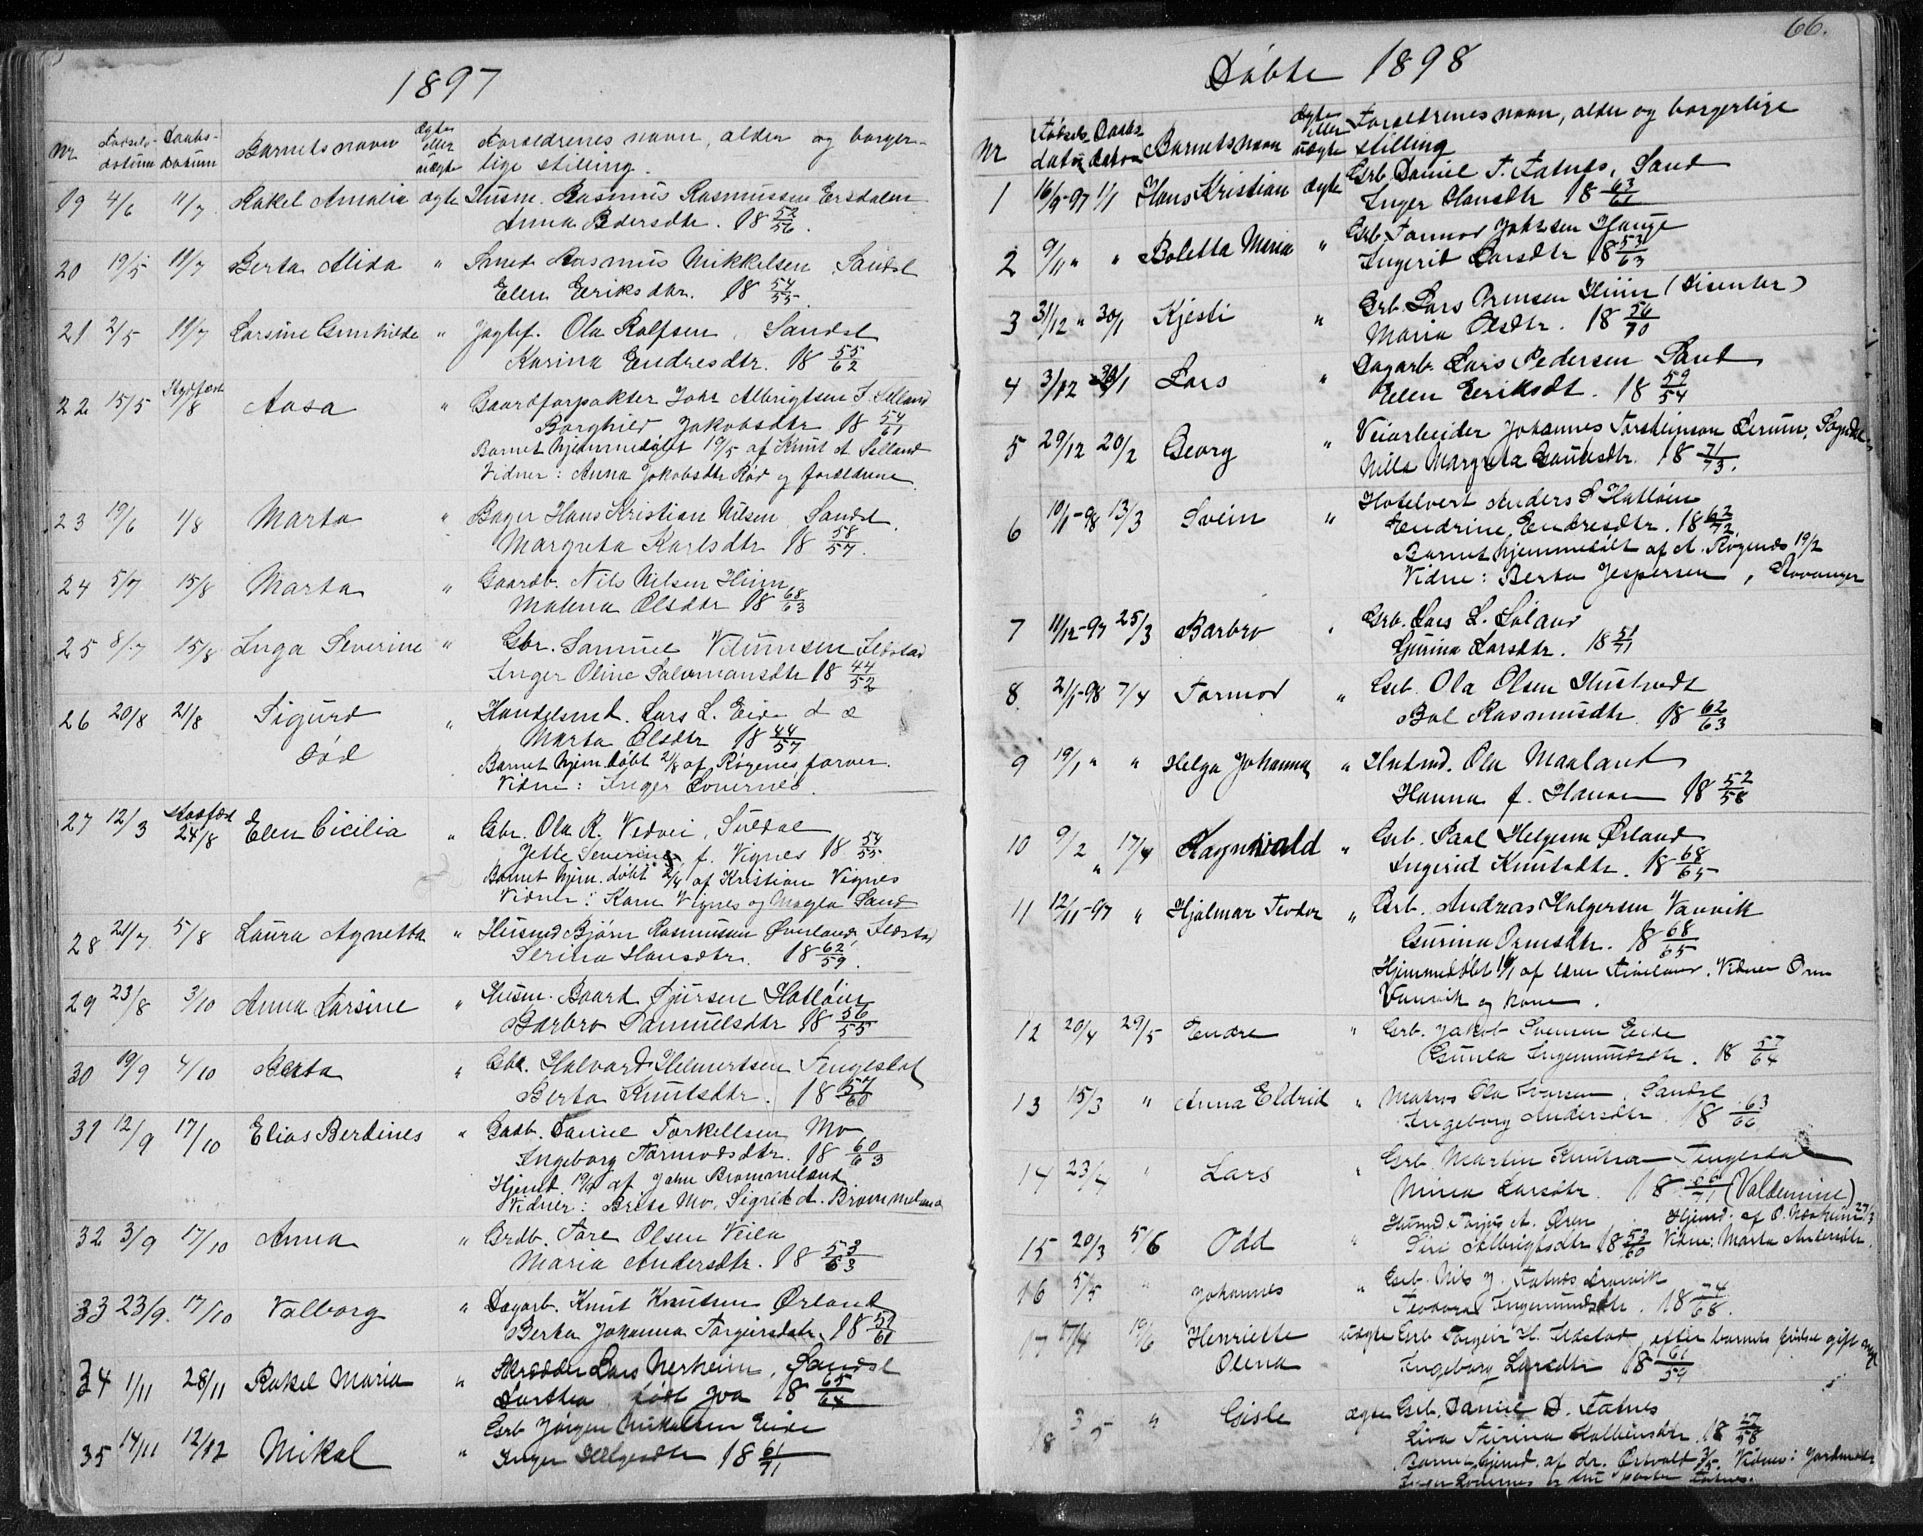 1897
Nr Fødsels-datum Daabs-datum Barnets navn ægte eller uægte Forældrenes navn, alder og borger-
lige stilling.
19 4/6 11/7 Rakel Amalia ægte Husm. Rasmus Rasmussen Ersdalen
Anna Pedersdtr. 18 52/56.
20 19/5 11/7 Berta Alida " Smed Rasmus Mikkelsen Sandsl
Elen Eeriksdtr. 18 54/55.
21 2/5 11/7 Larsine Gunhilde " Jagtf. Ola Rolfsen, Sandsl
Karina Endresdtr. 18 55/62
22 15/5 Stadfæst 1/8 Aasa " Gaardforpakter Johs Albrigtsen S. Selland
Borghild Jakobsdtr 18 54/61
Barnet hjemmedøbt 19/5 af Knut A Selland
Vidner: Anna Jakobsdtr Rød og forældrene
23 19/6 1/8 Marta " Bager Hans Kristian Nilsen, Sandsl.
Margreta Karlsdtr 18 58/57.
24 5/7 15/8 Marta " Gaardb. Nils Nilsen Hiim
Malena Olsdtr 18 68/63
25 8/7 15/8 Inga Severine " Gbr. Samuel Vilumsen Fløstad
Inger Oline Salomonsdtr 18 44/52
26 20/8 21/8 Sigurd " Handelsmd. Lars L. Eide
Død Marta Olsdtr 18 44/57
Barnet hjem.døbt 21/8 af Røgenes farver.
Vidne: Inger Lovernes.
27 12/3 Stadfæst 24/8 Elen Cicilia " Gbr. Ola R. Vedvei, Suldal
Jette Severine, f. Vignes 18 54/55.
Barnet hjem.døbt 2/4 af Kristian Vignes
Vidner: Karn Vignes og Magla Sand
28 21/7 5/8 Laura Agnetta " Husmd Bjørn Rasmussen Øverland, Fløstad
Serina Hansdtr. 18 62/59.
29 23/8 3/10 Anna Larsine " Husm. Baard Sjursen Hatløin
Barbro Samuelsdtr 18 56/55
30 19/9 4/10 Berta " Gbr. Halvard Helmertsen Tengesdal
Berta Knutsdtr. 18 57/60
31 12/9 17/10 Elias Berdines " Gadb. Daniel Torkellsen Mo
Ingeborg Tormodsdtr. 18 60/63
Hjemd 19/9 af John Brommeland
Vidner: Brite Mo, Sigrid A. Brommeland
32 3/9 17/10 Anna " Grdb. Tore Olsen Veila
Maria Andersdtr. 18 53/63
33 23/9. 17/10 Valborg " Dagarb. Knut Knutsen Ørland
Berta Johanna Torgiersdatr. 18 59/61
34 1/11 28/11 Rakel Maria " Skrædder Lars Nerheim, Sandsl
Dorthea født Joa 18 65/64
35 14/11 12/12 Mikal " Grb Jørgen Mikalsen Eide
Inger Helgesdtr 18 61/71
66.
Døbte 1898
Nr Fødsels datum Daabs datum Barnets navn ægte eller uægte Forældrenes navn, alder og borgerlige
stilling
1 16/9-97 1/1 Hans Kristian ægte Grb. Daniel T. Fatnes, Sand
Inger Hansdtr 18 63/61
2 9/11 " " Boletta Maria " Grb. Tormod Johnsen Hauge
Ingerid Larsdtr 18 53/63
3 31/12 " 30/1 Kjesti " Grb. Lars Ormsen Hiim (Disenter)
Maria Olsdtr. 18 56/70
4 3/12 30/1 Lars " Dagarb. Lars Pedersen Sand
Elen Eeriksdt. 18 59/54
5 29/12 20/2 Georg " Veiarbeider Johannes Torsteinson Lerum, Sogndal
Nilla Margreta Gautesdtr. 18 71/73.
6 10/1-98 13/3 Svein " Hotelvert Anders S Hatløin
Endrine Endresdtr. 18 62/72.
Barnet hjemmedøbt af A. Røgenes 19/2
Vidne: Berta Jespersen, Stavanger
7 11/12-97 25/3 Barbro " Grb. Lars L. Løland
Gjurina Larsdtr. 18 51/71
8 21/1-98 7/4 Tormod " Grb. Ola Olsen Hustvedt
Bol Rasmusdtr. 18 62/63
9 19/1 " " Helga Johanna " Husmd. Ola Maaland
Hanna f. Hansen 18 52/58
10 9/2 " 17/4 Ragnvald " Grb. Paal Helgesen Ørland
Ingerid Knutsdtr. 18 68/65
11 12/11-97 " Hjalmar Teodor " Grb. Andreas Holgersen Vanvik
Gurina Ormsdtr. 18 68/65
Hjemmedøbt 16/1 af lærer . Vidner Orm
Vanvik og kone.
12 20/4 29/5 Endre " Grb. Jakob Svensen Eide
Gunla Ingemundsdtr. 18 57/64
13 15/3 " Anna Eldrid " Matros Ola Iversen, Sandsl
Ingeborg Andersdtr. 18 63/66
14 23/4 " Lars " Grb. Martin Knutsen Tengesdal
Mina Larsdtr. 18 66/71 (Valdemine)
15 20/3 5/6 Odd " Husmd. Torjus A. Øren Hjemd. af O. 27/3
Siri Albrigtsdtr 18 53/60 Vidne: Marta Andersdtr.
16 5/5 " Johannes " Grb. Nils J. Fatnes Dravik
Teodora Ingemundsdtr. 18 74/68.
17 17/4 19/6 Henriette uægte Grb Torgeir H. Fløstad, efter barnets fødsel gift med
Olena Ingeborg Larsdtr 18 61/59
18 3/5 " Gisle ægte Grb. Daniel D. Fatnes
Liva Turina Kolbeinsdtr. 18 57/58
Barnet hjemd. af dr. Ørtvalt 3/5. Vidner: Jordmoder
Fatnes.